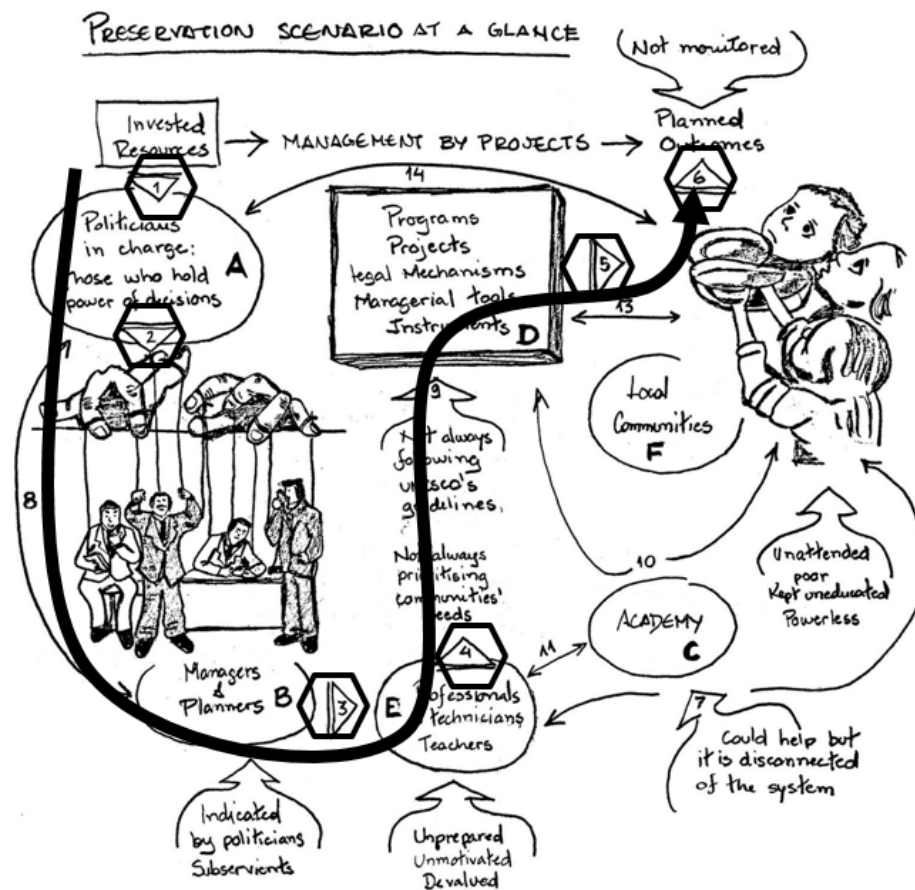 PRESERVATION SCENARIO AT A GLANCE
Not monitored
Invested
Resources
MANAGEMENT BY PROJECTS
Planned
Outcomes
1
14
6
Politicians
in charge:
those who hold
power of decisions
A
2
Programs
Projects
Legal Mechanisms
Managerial tools
Instruments
D
5
13
Local
Communities
F
8
9
Not always
following
UNESCO's
guidelines,
Not always
prioritising
communities'
needs
10
Unattended
poor
Kept uneducated
Powerless
ACADEMY
C
11
Managers
&
Planners
B
3
4
E
Professionals
technicians
Teachers
7
Could help but
it is disconnected
of the system
Indicated
by politicians
Subservients
Unprepared
Unmotivated
Devalued